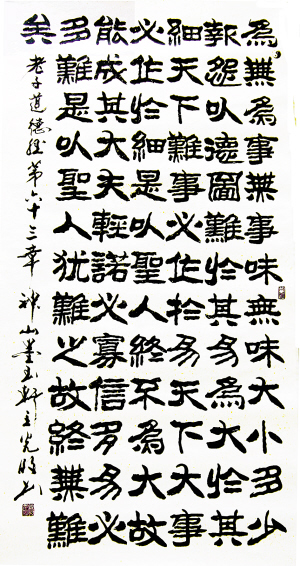 為無為事無事味無味大小多少
報怨以德圖難於其易為大於其
細天下難事必作於易天下大事
必作於細是以聖人終不為大故
能成其大夫輕諾必寡信多易必
多難是以聖人猶難之故終無難
矣
老子道德經第六十三章 神山墨玉軒主